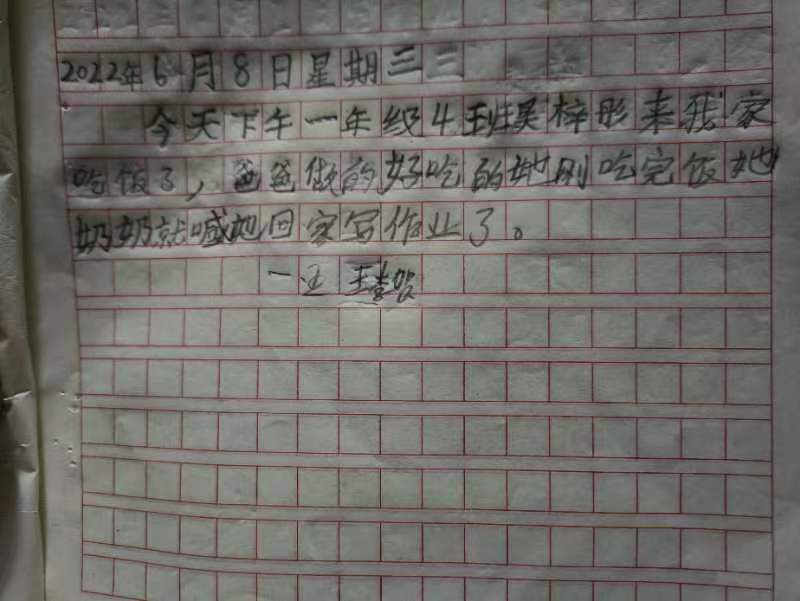 2022年6月8日星期三
今天下午一年级4班吴梓彤来我家
吃饭了,爸爸做的好吃的她刚吃完饭她
奶奶就喊她回家写作业了。
一